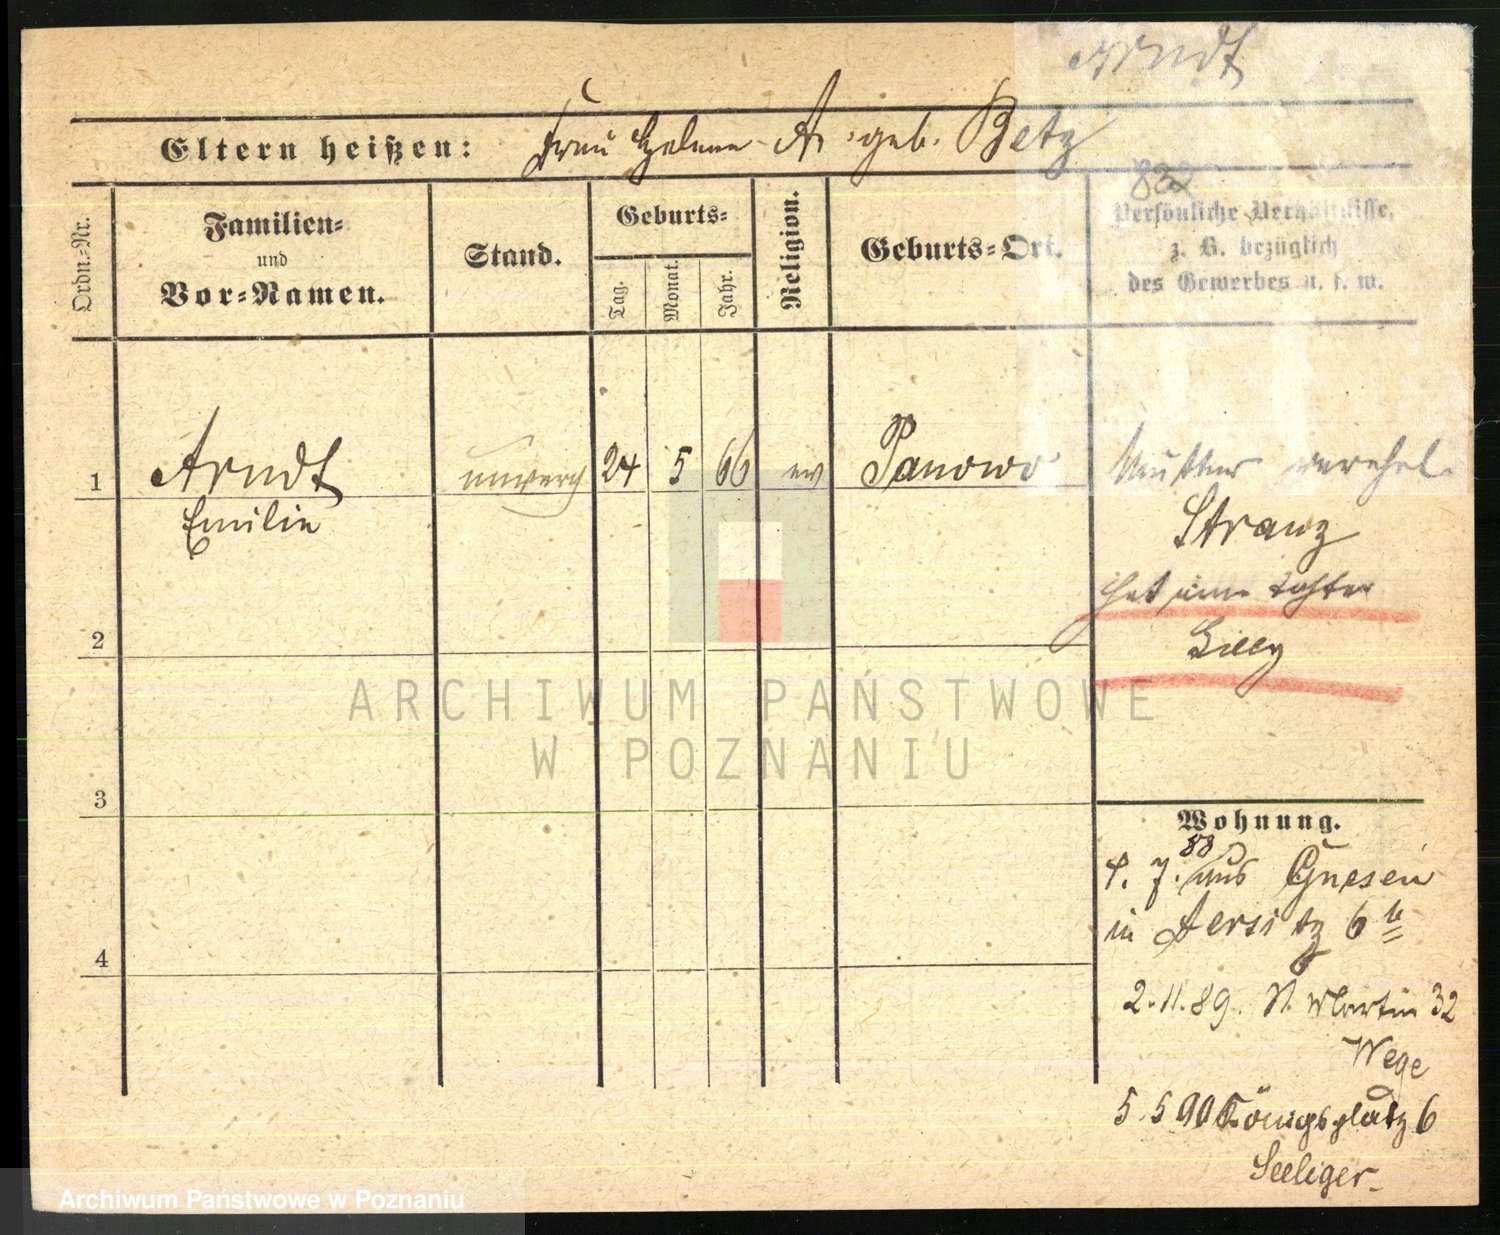 Arndt
Eltern heißen: Frau Helene A. geb. Betz
832
Ordn.-Nr.
Familien-
und
Vor-Namen.
Stand.
Geburts-
Tag.
Monat.
Jahr.
Religion.
Geburts-Ort.
Persönliche Verhältnisse,
z. B. bezüglich
des Gewerbes u. s. w.
1 Arndt unverh 24 5 66 ev Panowo Mutter verehel.
Emilie
Stranz
hat eine Tochter
2
ARCHIWUM PAŃSTWOWE
W POZNANIU
3
Wohnung.
88
4. 7. aus Gnesen
in Jersitz 6
4
2.11.89. St. Martin 32
Wege
5. 5 90 Königsplatz 6
Seeliger
Archiwum Państwowe w Poznaniu